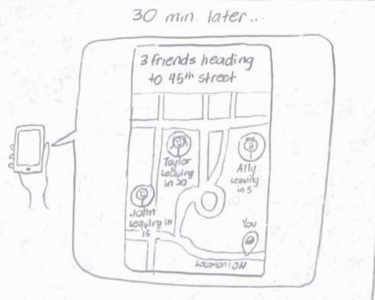 30 min later...
3 friends heading
to 45th street
Taylor
Leaving
in 20
Ally
Leaving
in 5
John
Leaving in
15
You
Location: ON